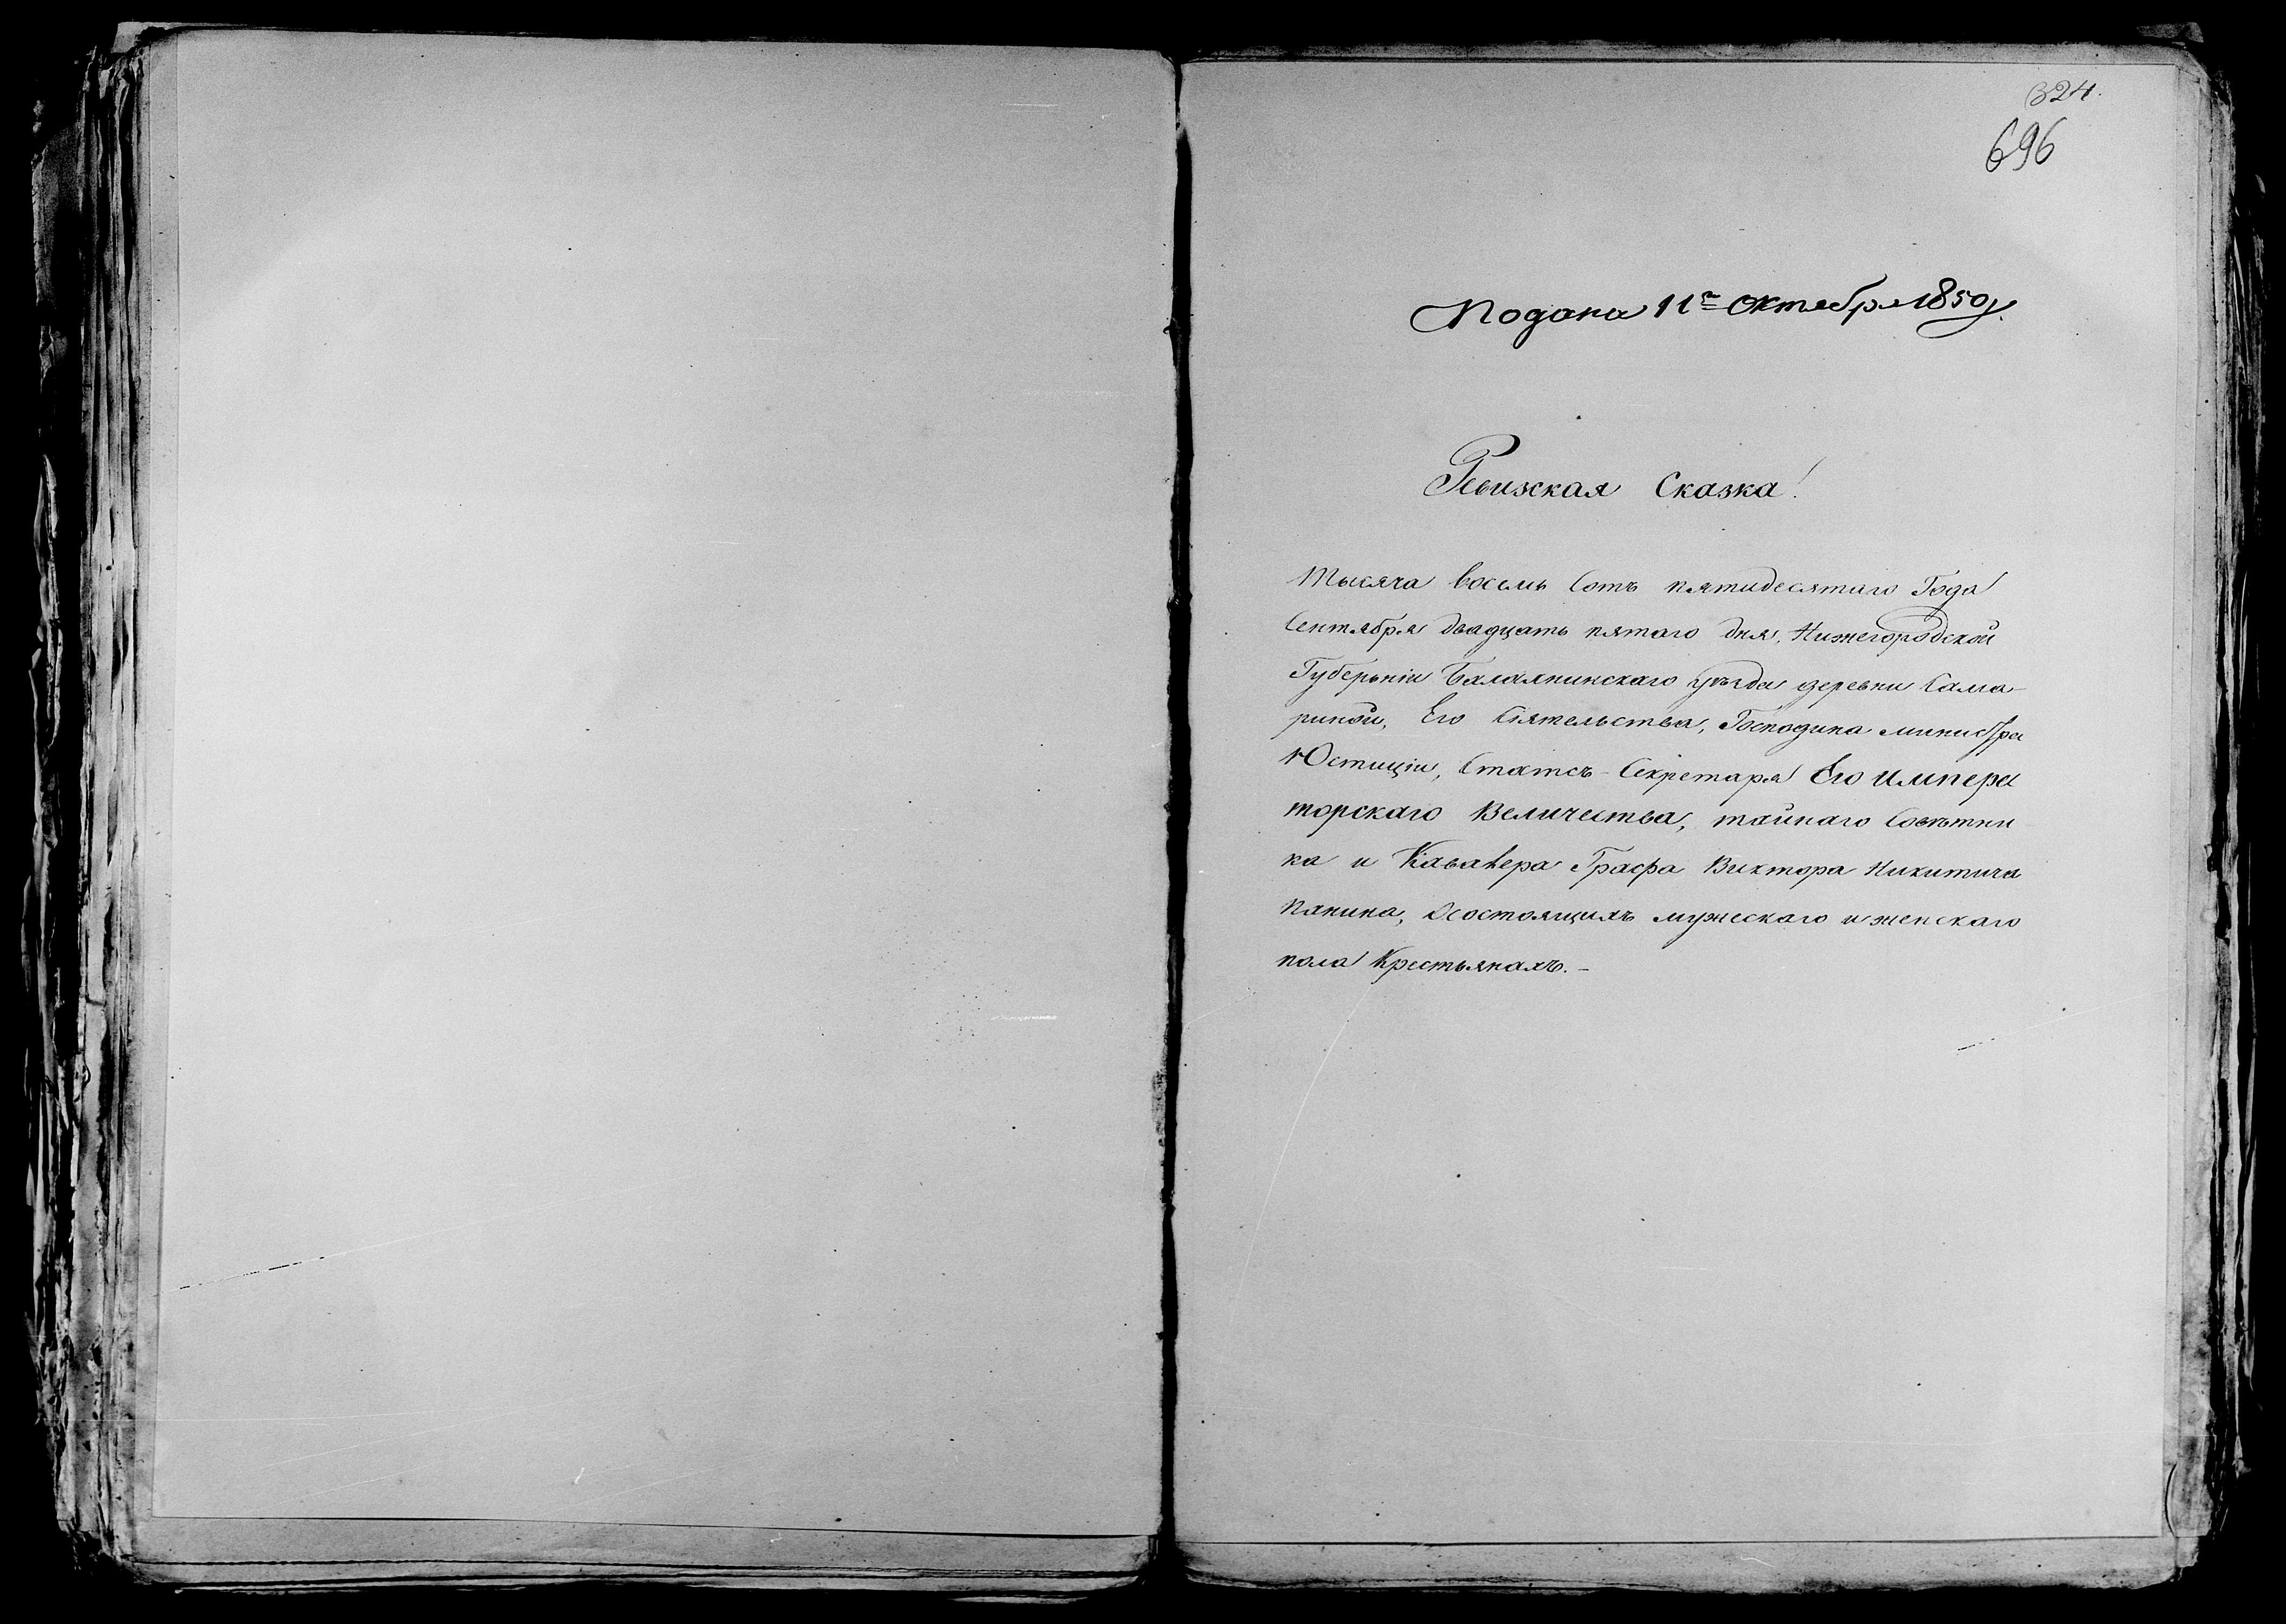 324.
696
Подана 11го Октября 1850 г.
Ревижская Сказка!
Тысяча восемь Сотъ пятидесятаго Года
Сентября двадцать пятаго дня, Нижегородской
Губерьніи Балахнинскаго уѣзда деревни Сама-
риной, Его Сіятельства, Господина министра
Юстиціи, Статсъ-Секретаря Его импера
торскаго Величества, тайнаго Совѣтни
ка и Кавалера Графа Виктора Никитича
Панина, Осостоящихъ мужескаго и женскаго
пола Крестьянахъ.-